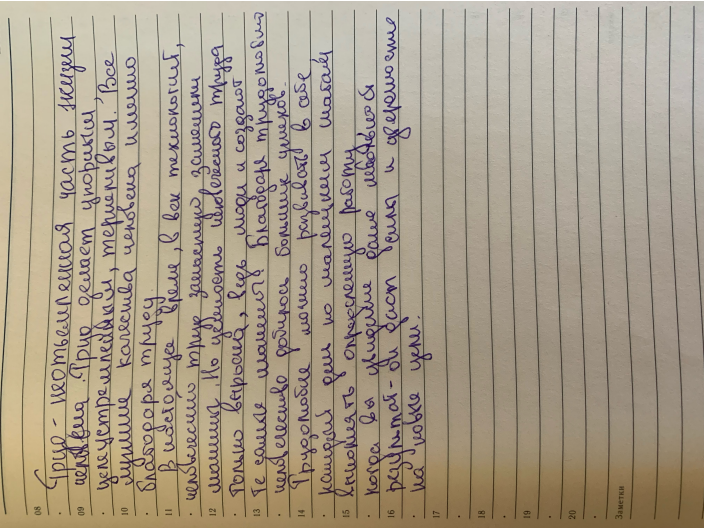 08
Труд - неотъемлемая часть жизни
09
человека. Труд делает упорным,
целеустремлённым, терпеливым. Все
10
лучшие качества человека именно
благодаря труду.
11
В настоящее время, в век технологий,
человеческий труд замещено
12
машины. Но ценность человеческого труда
только выросла, ведь люди и создают
13
те самые машины! Благодаря трудолюбию
человечество добилось больших успехов.
14
Трудолюбие можно развивать в себе,
каждый день по маленьким шагам
15
выполнять определённую работу
когда вы увидите даже небольшой
16
результат - он даст силы и
на новые цели.
17
18
19
20
Заметки